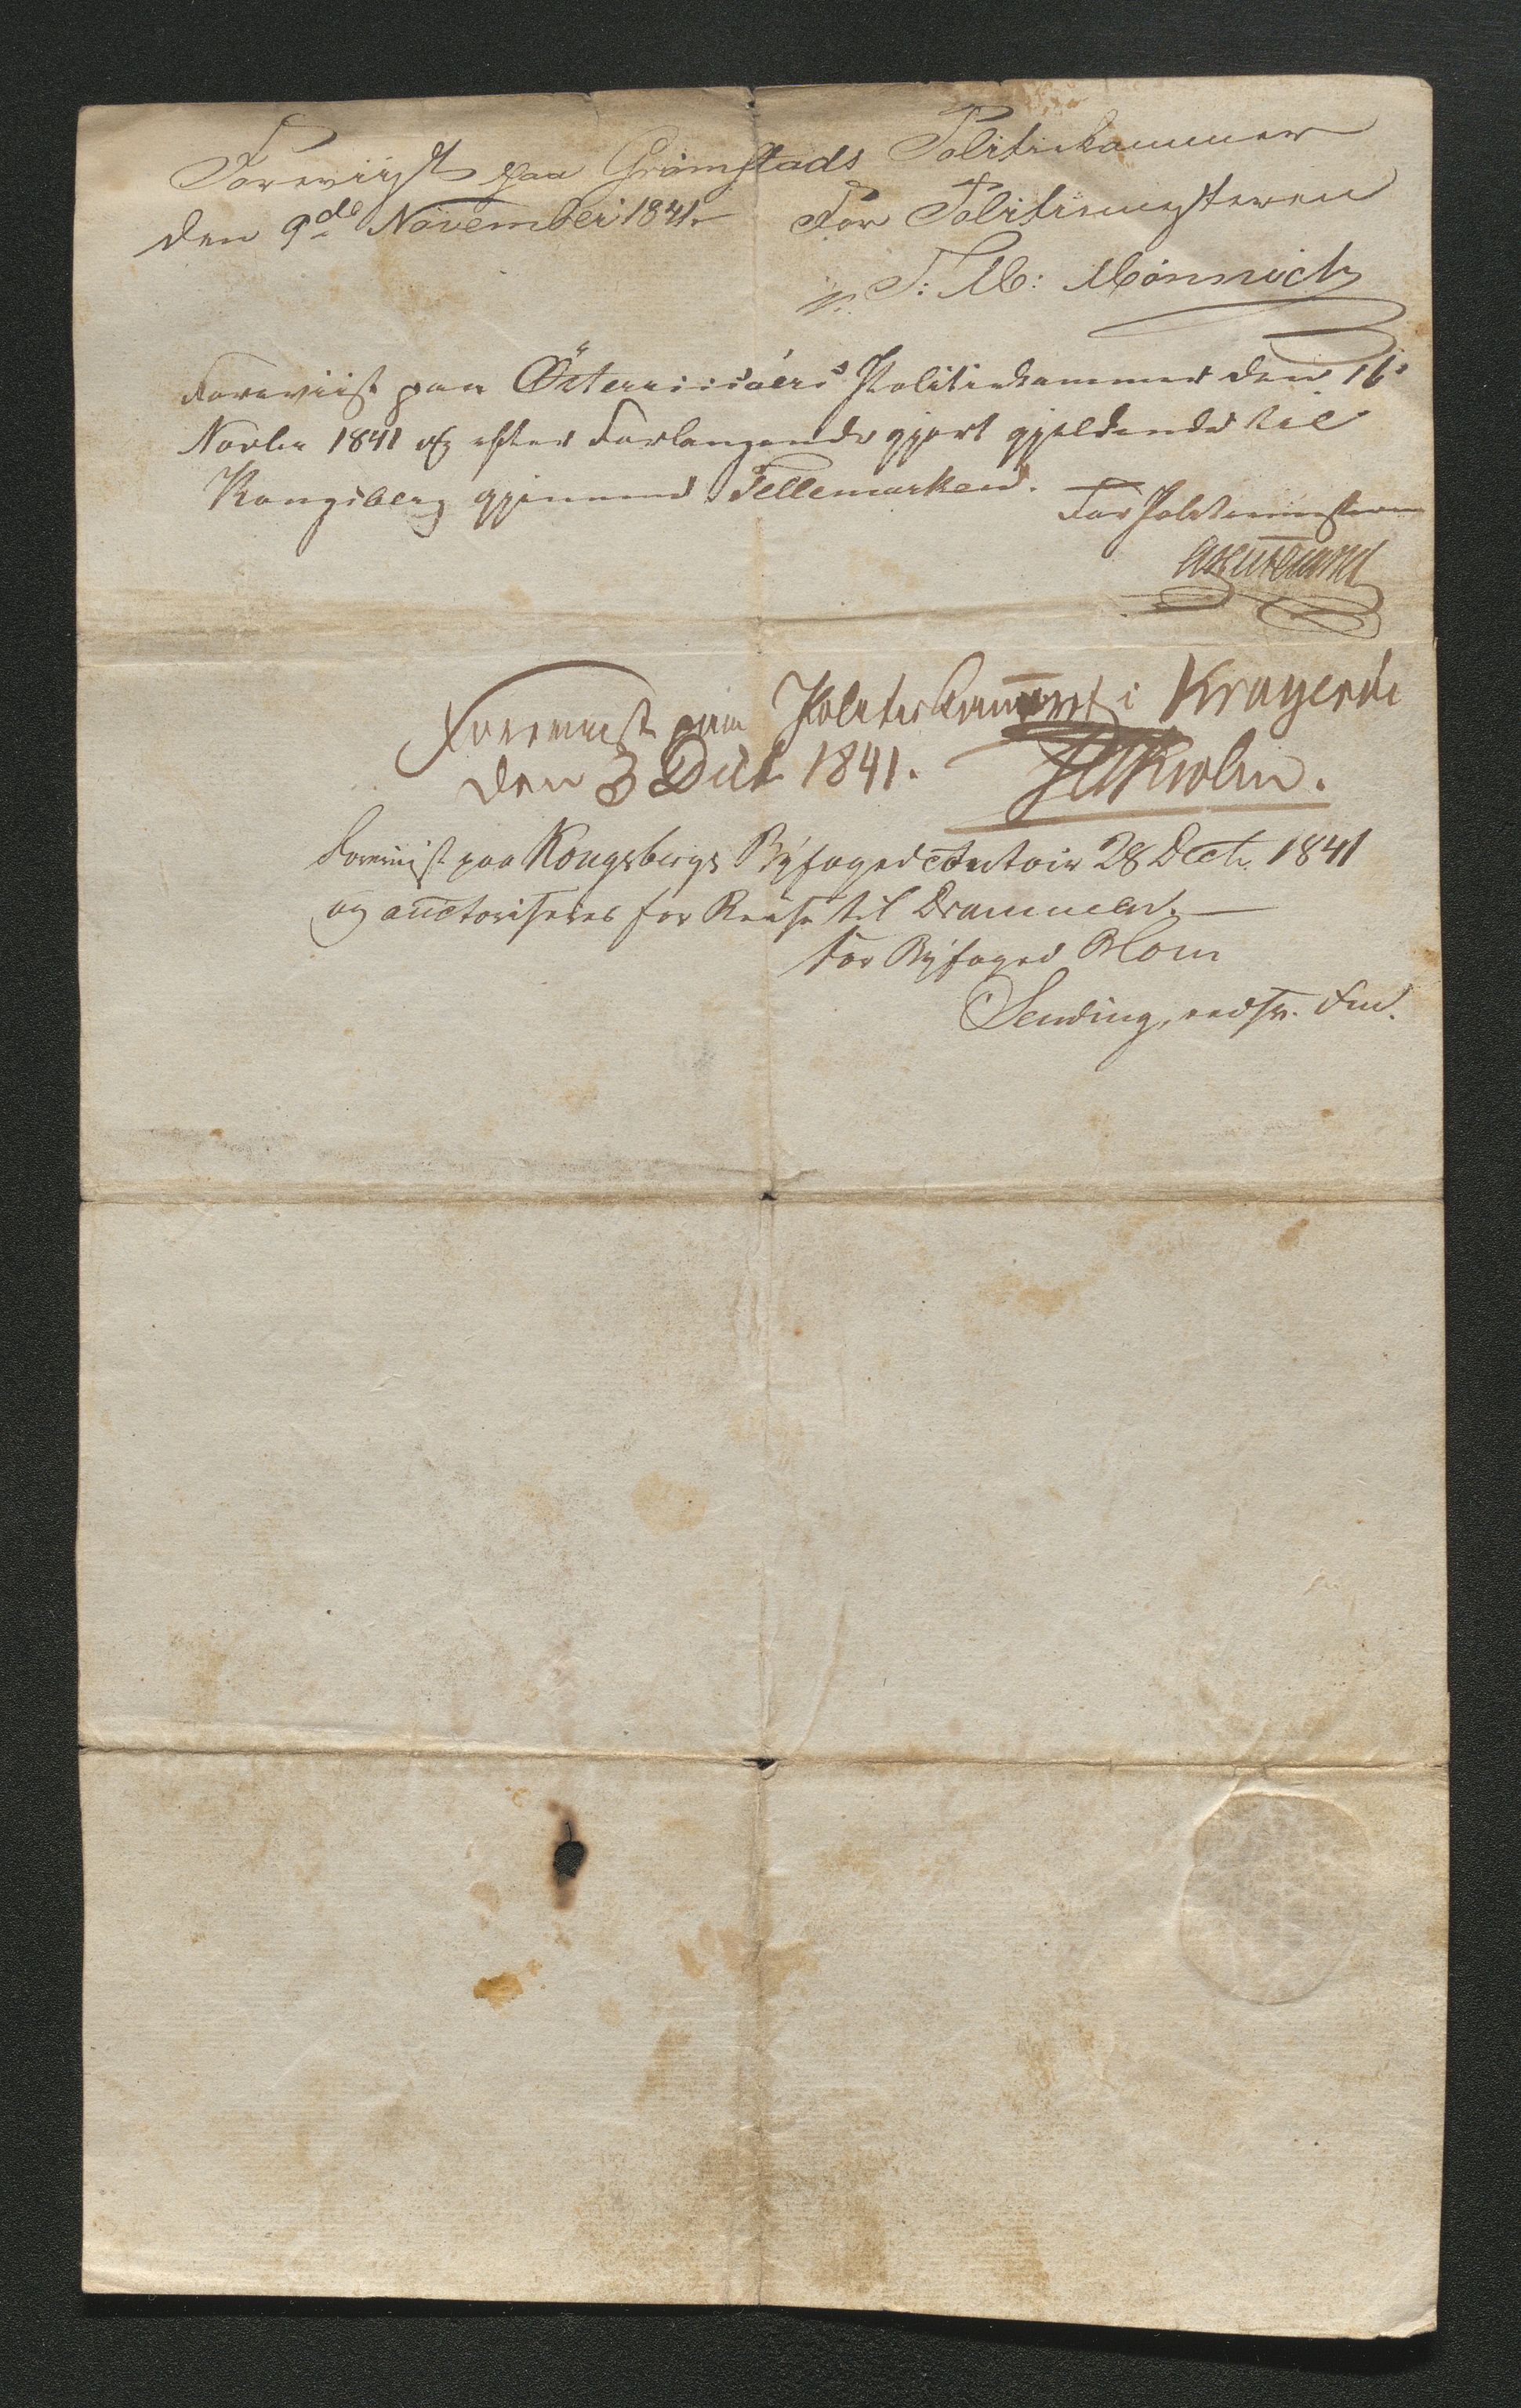 Foreviist paa Grimstads Politiekammer
den 9de November 1841. For Politimesteren
T: M: Mönnich
Foreviist paa Österriisöers Politiekammer den 16
Novbr 1841 og efter Forlangende gjort gjeldende til
Kongsberg gjennem Tellemarken.
For Politimesteren
Foreviist paa Politiekammeret i Kragerøe
den 3 Decbr 1841.
Foreviist paa Kongsbergs Byfogedcontoir 28 Decbr 1841
og auctoriseres for Reise til Drammen.
For Byfoged Blom
Sending, eedsv. Fm.